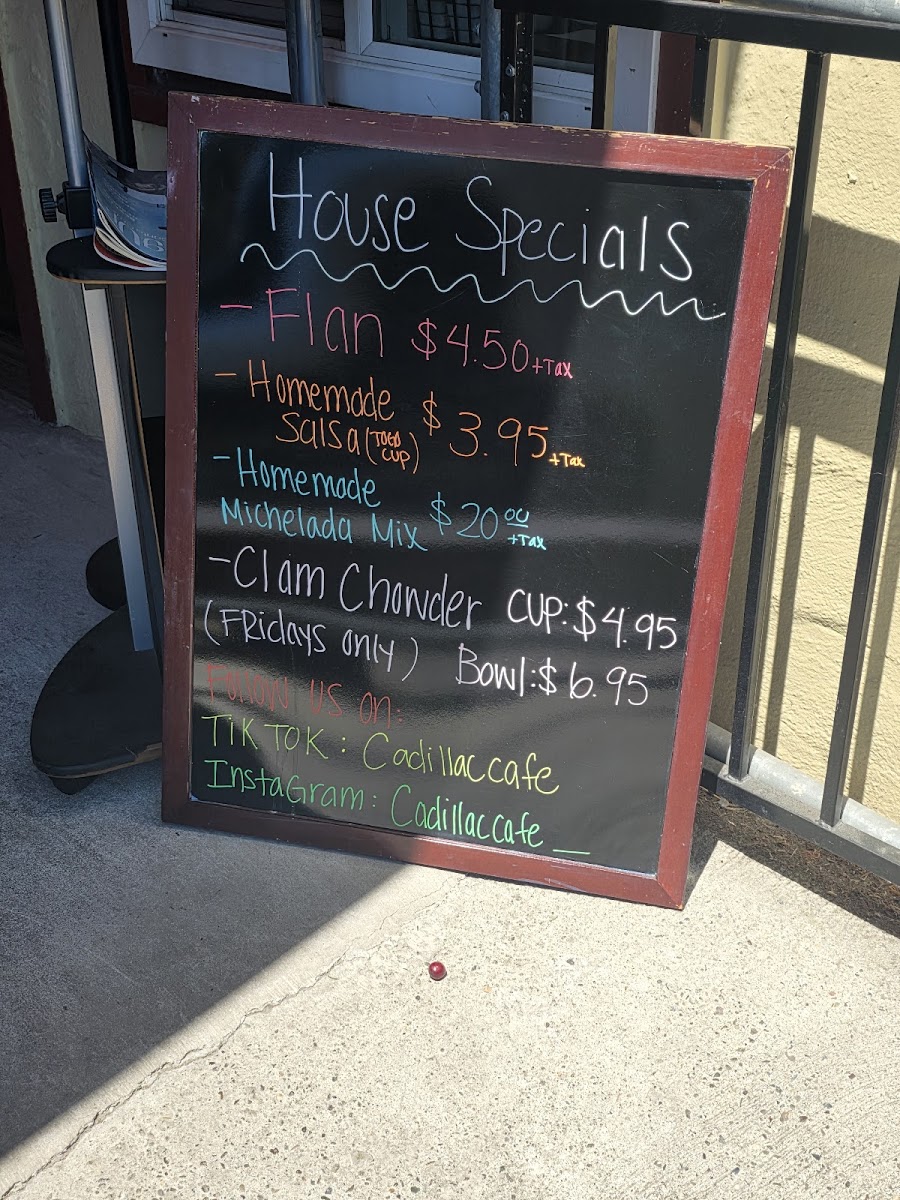 House Specials
- Flan $4.50 +Tax
- Homemade
Salsa (TOGO CUP) $3.95 +Tax
- Homemade
Michelada Mix $20.00 +Tax
- Clam Chowder CUP: $4.95
(FRidays only) Bowl: $6.95
Follow us on:
TIK TOK: Cadillaccafe
InstaGram: Cadillaccafe_